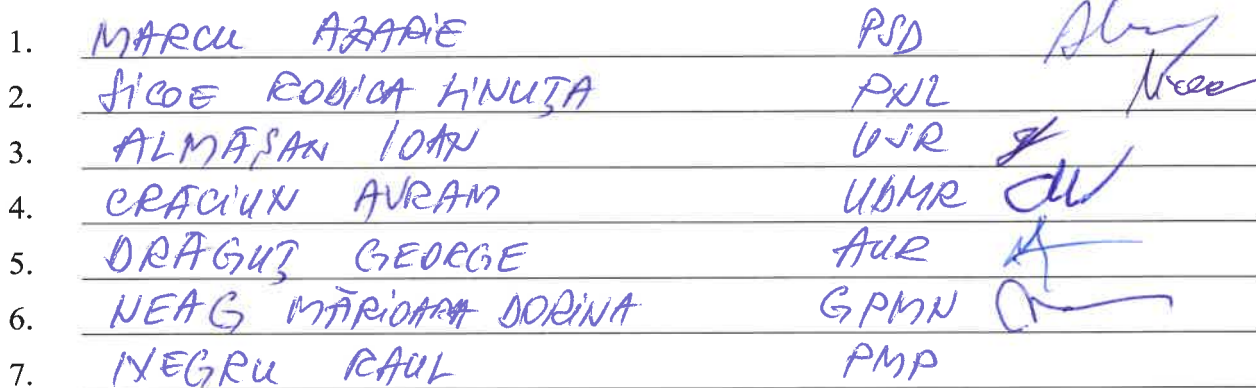 1. MARCU AZARIE PSD
2. SICOE RODICA LINUȚA PNL
3. ALMĂȘAN IOAN USR
4. CRĂCIUN AVRAM UDMR
5. DRĂGUȚ GEORGE AUR
6. NEAG MĂRIOARA DORINA GPMN
7. NEGRU RAUL PMP